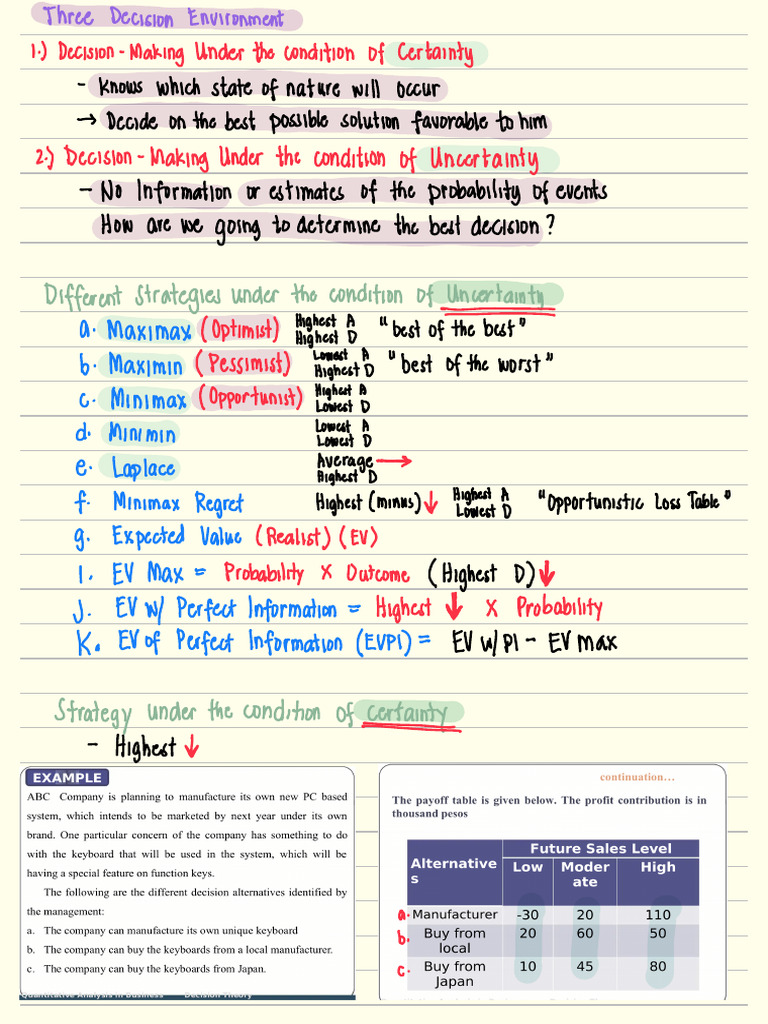 Three Decision Environment
1.) Decision-Making Under the condition of Certainty
- Knows which state of nature will occur
→ Decide on the best possible solution favorable to him
2.) Decision-Making Under the condition of Uncertainty
- No Information or estimates of the probability of events
How are we going to determine the best decision?
Different Strategies under the condition of Uncertainty
a. Maximax (Optimist) Highest A Highest D "best of the best"
b. Maximin (Pessimist) Lowest A Highest D "best of the worst"
c. Minimax (Opportunist) Highest A Lowest D
d. Minimin Lowest A Lowest D
e. Laplace Average → Highest D
f. Minimax Regret Highest (minus) ↓ Highest A Lowest D "Opportunistic Loss Table"
g. Expected Value (Realist) (EV)
I. EV Max = Probability x Outcome (Highest D) ↓
J. EV w/ Perfect Information = Highest ↓ x Probability
K. EV of Perfect Information (EVPI) = EV w/ PI - EV max
Strategy under the condition of certainty
- Highest ↓
EXAMPLE
ABC Company is planning to manufacture its own new PC based
system, which intends to be marketed by next year under its own
brand. One particular concern of the company has something to do
with the keyboard that will be used in the system, which will be
having a special feature on function keys.
The following are the different decision alternatives identified by
the management:
a. The company can manufacture its own unique keyboard
b. The company can buy the keyboards from a local manufacturer.
c. The company can buy the keyboards from Japan.
Quantitative Analysis in Business Decision Theory
continuation…
The payoff table is given below. The profit contribution is in
thousand pesos
Alternative
s
Future Sales Level
Low Moder
ate High
a. Manufacturer -30 20 110
b. Buy from
local 20 60 50
c. Buy from
Japan 10 45 80